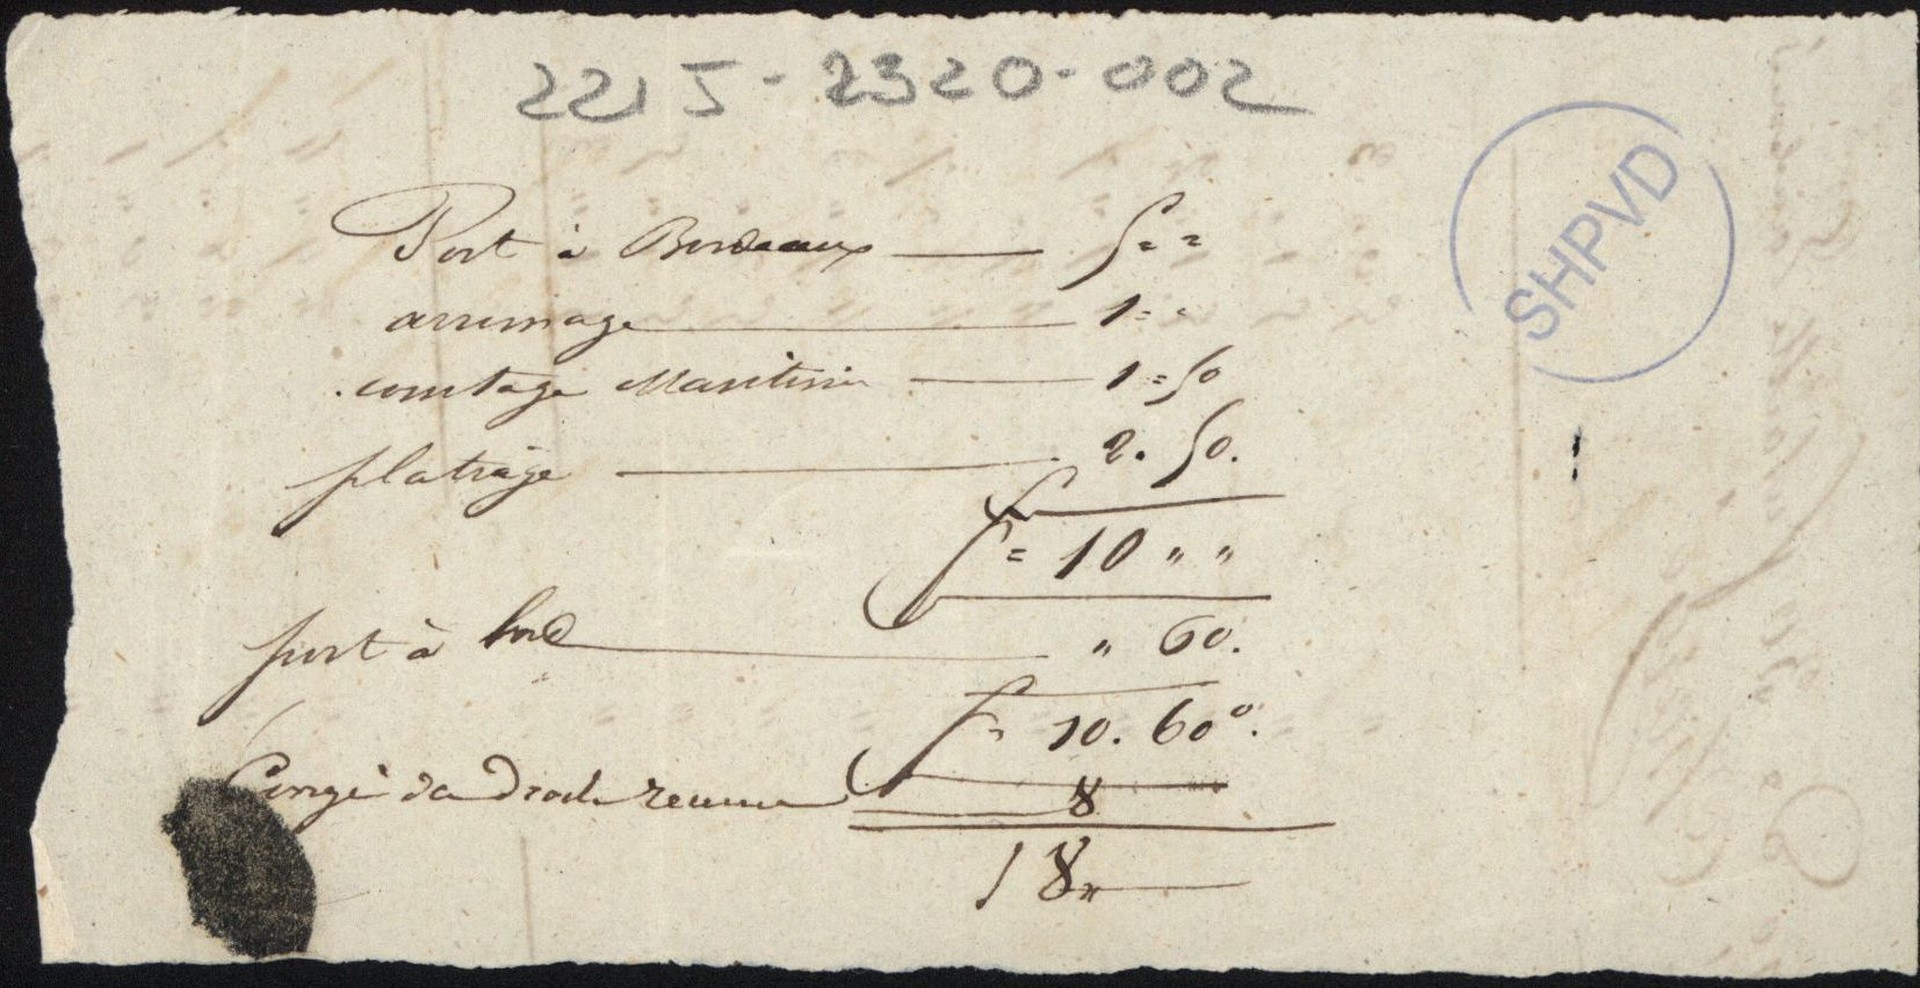 2215-2320-002
SHPVD
Port à Bordeaux — 5 = =
arrimage — 1 = =
courtage Maritime — 1 = 50
platrage — 2. 50.
f = 10 " "
port à bord — " 60.
f = 10. 60°.
Congé 8
18 "